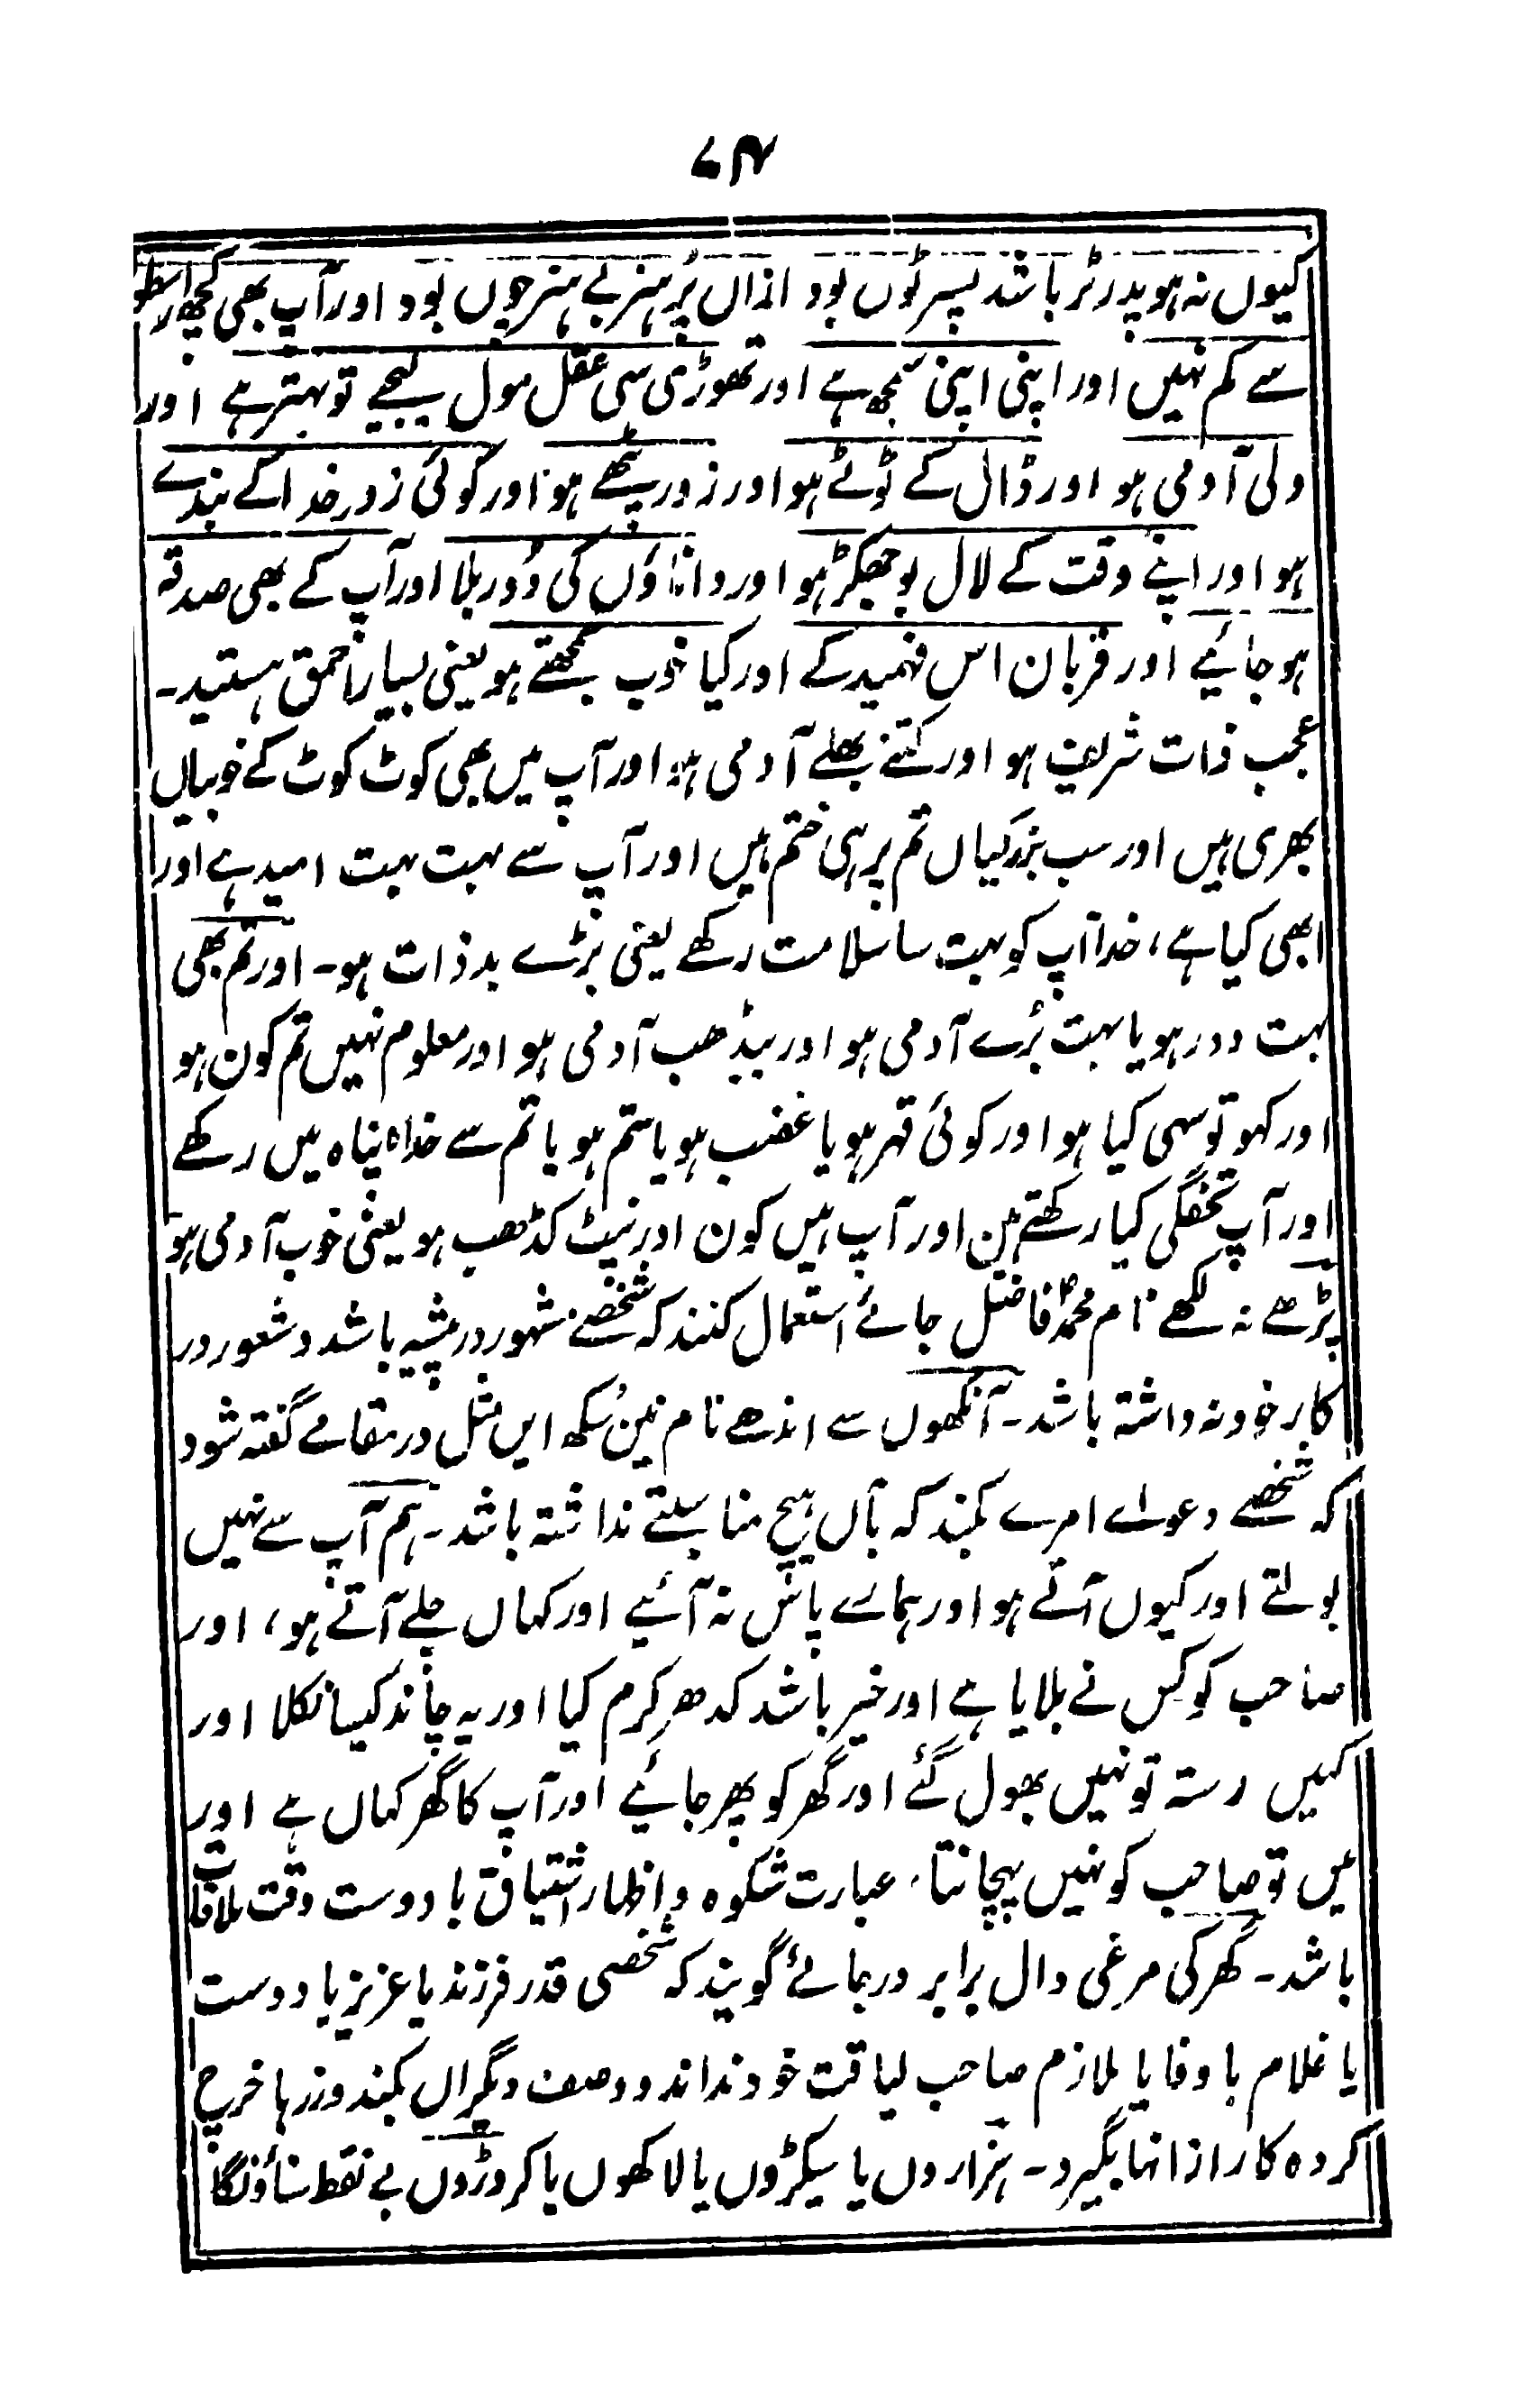 ۷۴
کیوں نہ ہو پدر ٹر باشد پسر ٹوں بود ازاں پُر ہنر بے ہنر چوں بود اور آپ بھی کچھ ارسطو
سے کم نہیں اور اپنی اپنی سمجھ ہے اور تھوڑی سی عقل مول لیجیے تو بہتر ہے اور
ولی آدمی ہو اور ڈال کے ٹوٹے ہو اور زور بیٹھے ہو اور کوئی زور خدا کے بندے
ہو اور اپنے وقت کے لال بوجھکڑ ہو اور داناؤں کی دُور بلا اور آپ کے بھی صدقہ
ہو جائیے اور قربان اس فہمید کے اور کیا خوب سمجھتے ہو یعنی بسیار احمق ہستید۔
عجب ذات شریف ہو اور کتنے بھلے آدمی ہو اور آپ میں بھی کوٹ کوٹ کے خوبیاں
بھری ہیں اور سب بزرگیاں تم پر ہی ختم ہیں اور آپ سے بہت بہت امید ہے اور
ابھی کیا ہے، خدا آپ کو بہت سا سلامت رکھے یعنی بڑے بد ذات ہو۔ اور تم بھی
بہت دور ہو یا بہت بُرے آدمی ہو اور بیڈھب آدمی ہو اور معلوم نہیں تم کون ہو
اور کہو تو سہی کیا ہو اور کوئی قہر ہو یا غضب ہو یا ستم ہو یا تم سے خداہ پناہ میں رکھے
اور آپ تحفگی کیا رکھتے ہین اور آپ ہیں کون اور نپٹ کڈھب ہو یعنی خوب آدمی ہو
پڑھے نہ لکھے نام محمدؐ فاضل جائے استعمال کنند کہ شخصے مشہور در پیشہ باشد و شعور در
کار خود نہ داشتہ باشد۔ آنکھوں سے اندھے نام نین سُکھ ایں مثل در مقامے گفتہ شود
کہ شخصے دعوائے امرے کند کہ بآں ہیچ مناسبتے نداشتہ باشد۔ ہم آپ سے نہیں
بولتے اور کیوں آتے ہو اور ہمارے پاس نہ آئیے اور کہاں چلے آتے ہو، اور
صاحب کو کس نے بلایا ہے اور خیر باشد کدھر کرم کیا اور یہ چاند کیسا نکلا اور
کہیں رستہ تو نہیں بھول گئے اور گھر کو پھر جائیے اور آپ کا گھر کہاں ہے اور
میں تو صاحب کو نہیں پہچانتا، عبارت شکوہ و اظہار اشتیاق با دوست وقت ملاقات
باشد۔ گھر کی مرغی دال برابر در بجائے گویند کہ شخصی قدر فرزند یا عزیز یا دوست
یا غلام با وفا یا ملازم صاحب لیاقت خود نداند و وصف دیگراں بکند و زرہا خرچ
کردہ کار از انہا بگیرد۔ ہزاروں یا سیکڑوں یا لاکھوں یا کروڑوں بے نقط سناؤنگا